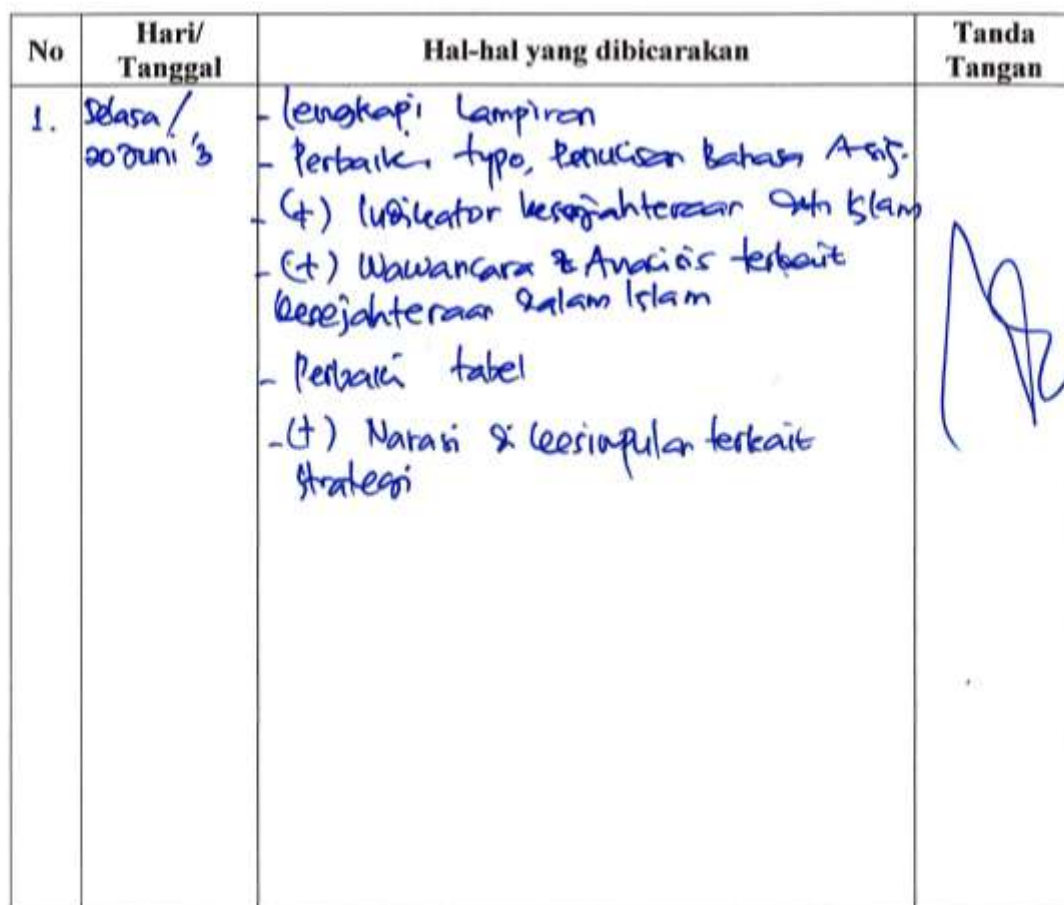 No
Hari/
Tanggal
Hal-hal yang dibicarakan
Tanda
Tangan
1.
Selasa /
20 Juni '3
- lengkapi Lampiran
- Perbaiki typo, Penulisan Bahasa Asig.
- (+) Indikator kesejahteraan dlm Islam
- (+) Wawancara & Analisis terkait
kesejahteraan dalam Islam
- Perbaiki tabel
- (+) Narasi & kesimpulan terkait
strategi